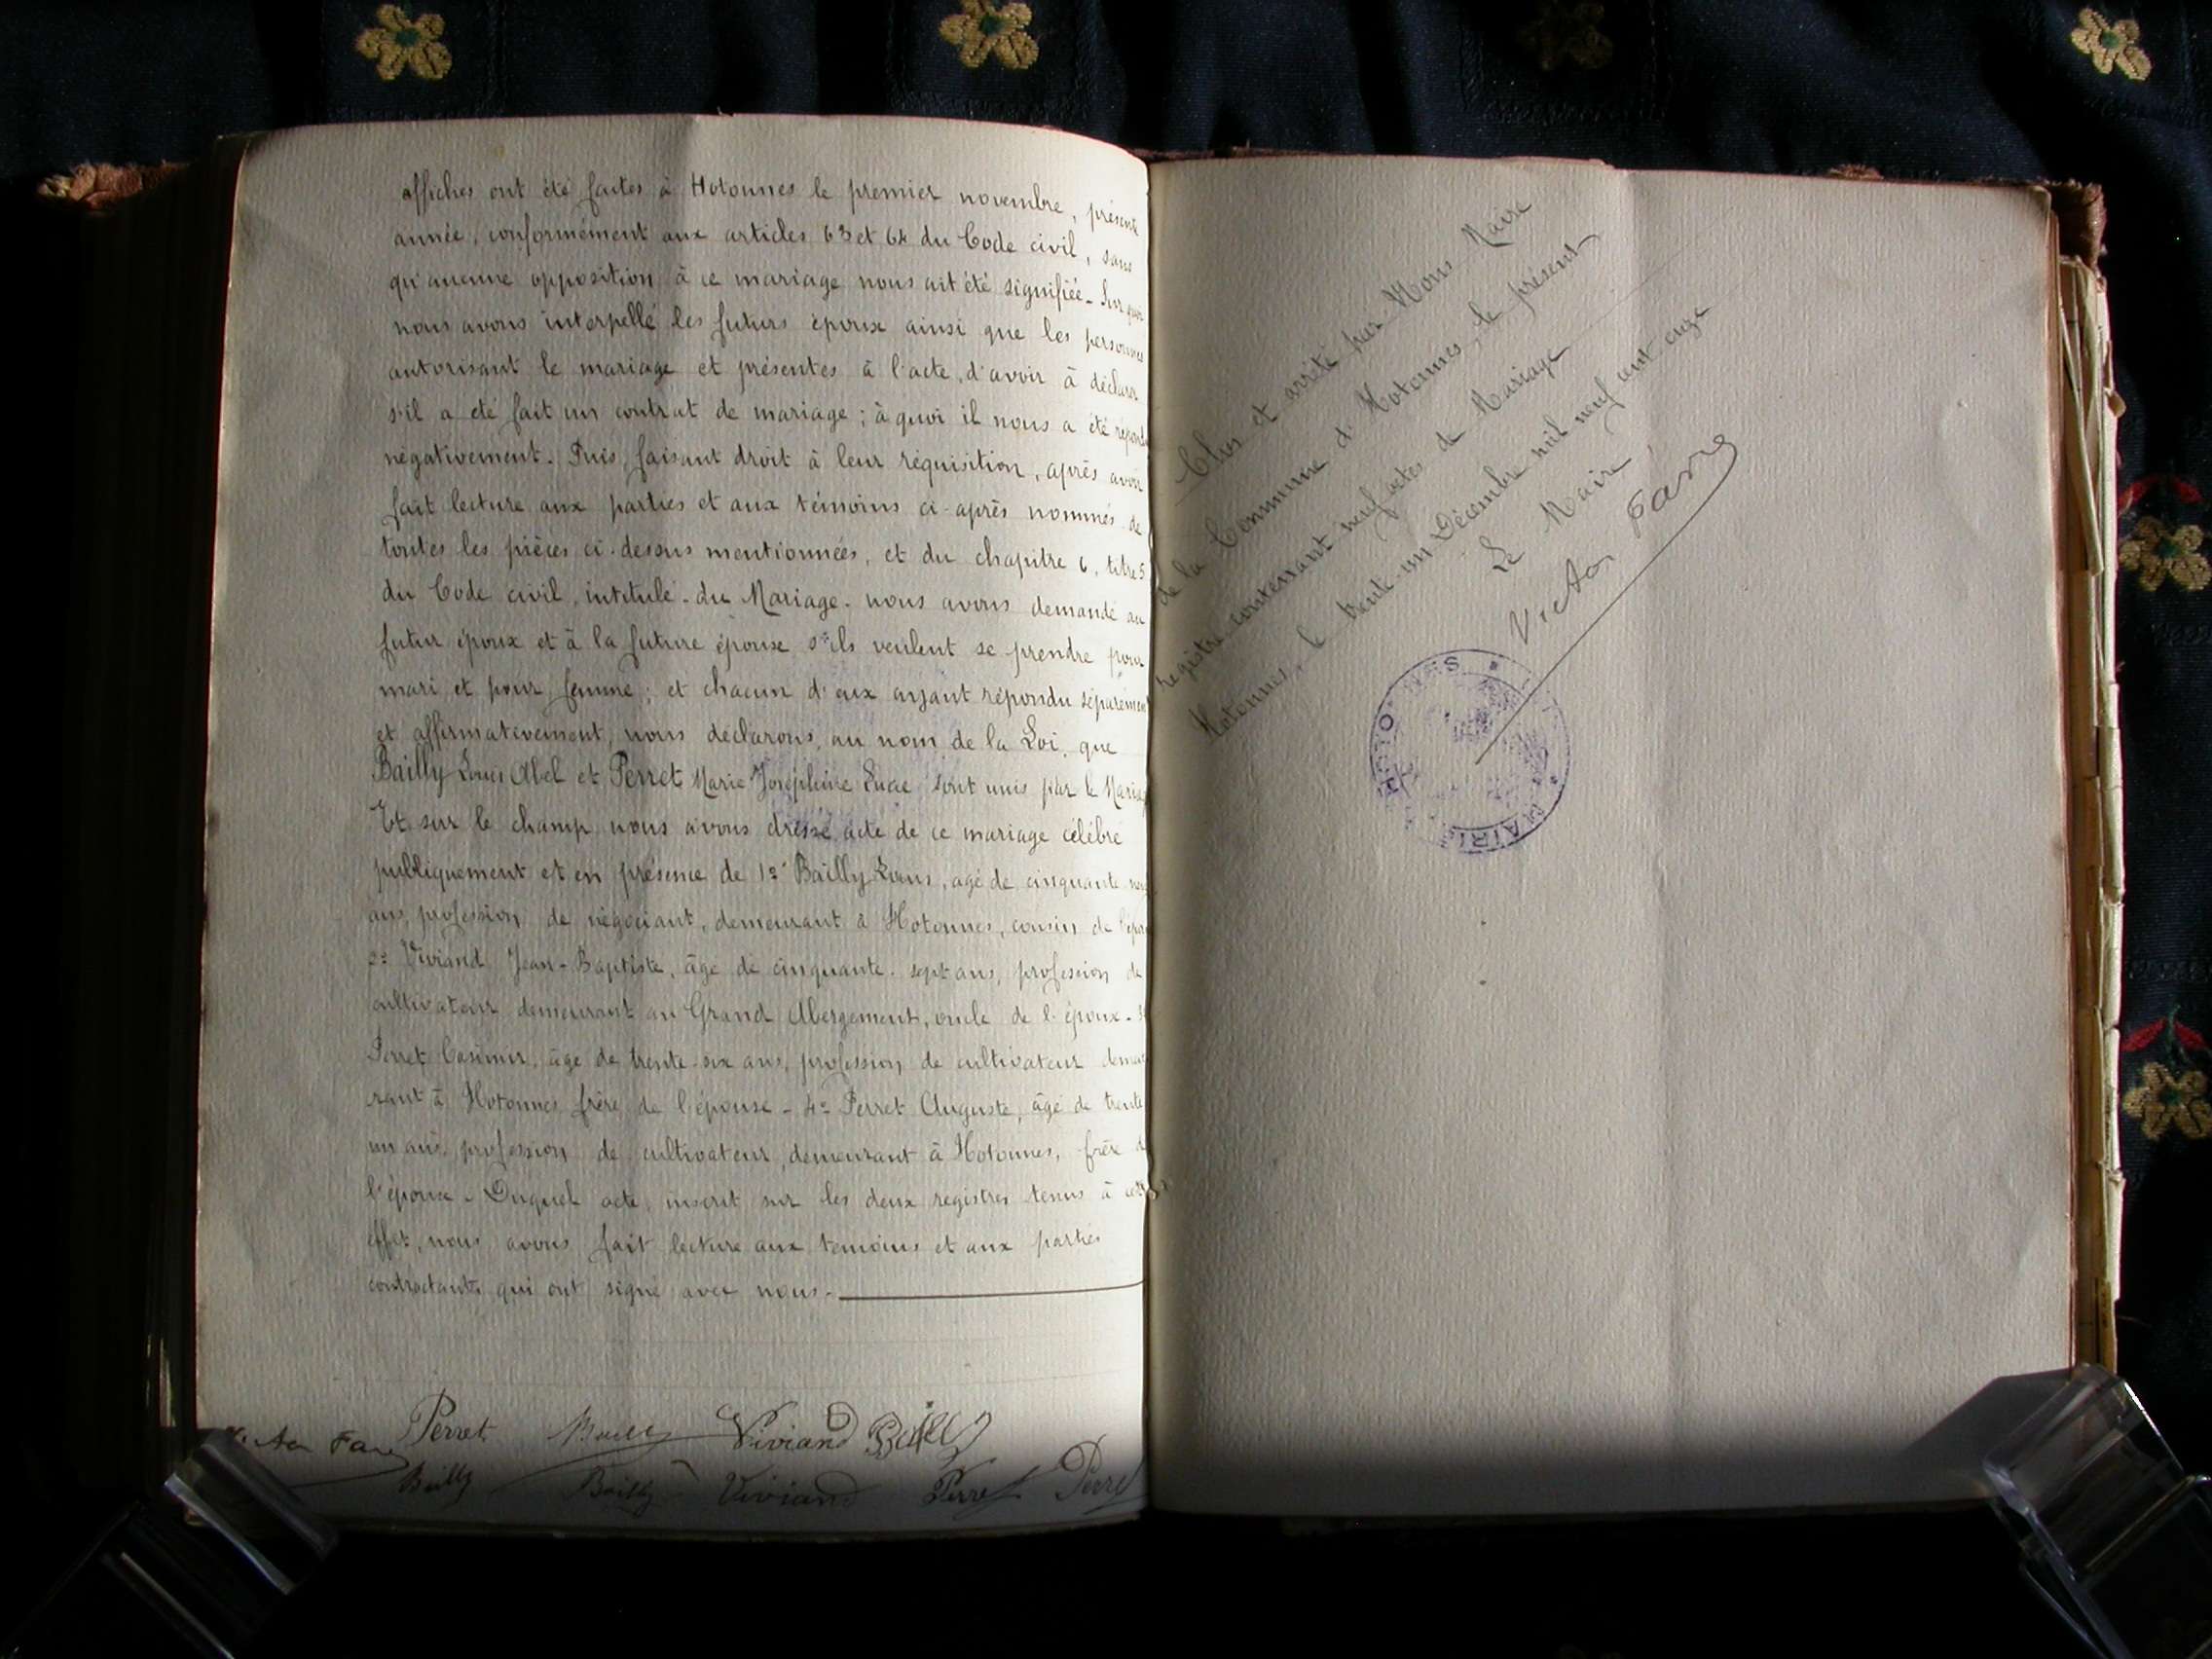 affiches ont été faites à Hotonnes le premier novembre, présente
année, conformément aux articles 63 et 64 du Code civil, sans
qu'aucune opposition à ce mariage nous ait été signifiée - Sur quoi
nous avons interpellé les futurs époux ainsi que les personnes
autorisant le mariage et présentes à l'acte, d'avoir à déclarer
s'il a été fait un contrat de mariage ; à quoi il nous a été répondu
négativement. Puis, faisant droit à leur réquisition, après avoir
fait lecture aux parties et aux témoins ci-après nommés de
toutes les pièces ci-dessus mentionnées, et du chapitre 6, titre 5
du Code civil, intitulé - du Mariage - nous avons demandé au
futur époux et à la future épouse s'ils veulent se prendre pour
mari et pour femme ; et chacun d'eux ayant répondu séparément
et affirmativement, nous déclarons, au nom de la Loi, que
Bailly Louis Abel et Perret Marie Joséphine sont unis par le Mariage
Et sur le champ nous avons dressé acte de ce mariage célébré
publiquement et en présence de 1º Bailly Louis, agé de cinquante
ans, profession de négociant, demeurant à Hotonnes, cousin de
2º Viviand Jean-Baptiste, âgé de cinquante-sept ans, profession de
cultivateur demeurant au Grand Abergement, oncle de l'époux - 3º
Perret Casimir, âgé de trente-six ans, profession de cultivateur demeu
rant à Hotonnes frère de l'épouse - 4º Perret Auguste, âgé de trente
un ans, profession de cultivateur, demeurant à Hotonnes, frère de
l'épouse - Duquel acte, inscrit sur les deux registres tenus à cet
effet, nous avons fait lecture aux témoins et aux parties
contractantes qui ont signé avec nous.
Victor Favre Perret Bailly Viviand Bailly
Bailly Bailly Viviand Perret Perret
Clos et arrêté par Nous Maire
de la Commune d'Hotonnes, le présent
registre contenant neuf actes de Mariage
Hotonnes, le trente-un Décembre mil neuf cent onze
Le Maire,
Victor Favre
HOTONNES MAIRIE